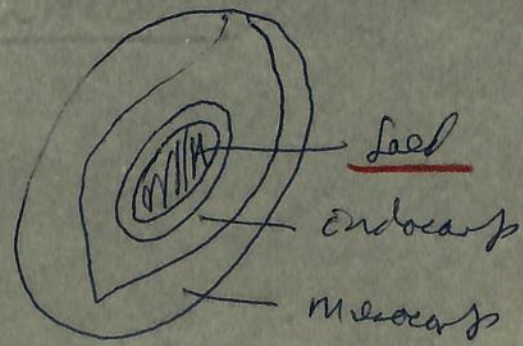 Seed
endocarp
mesocarp